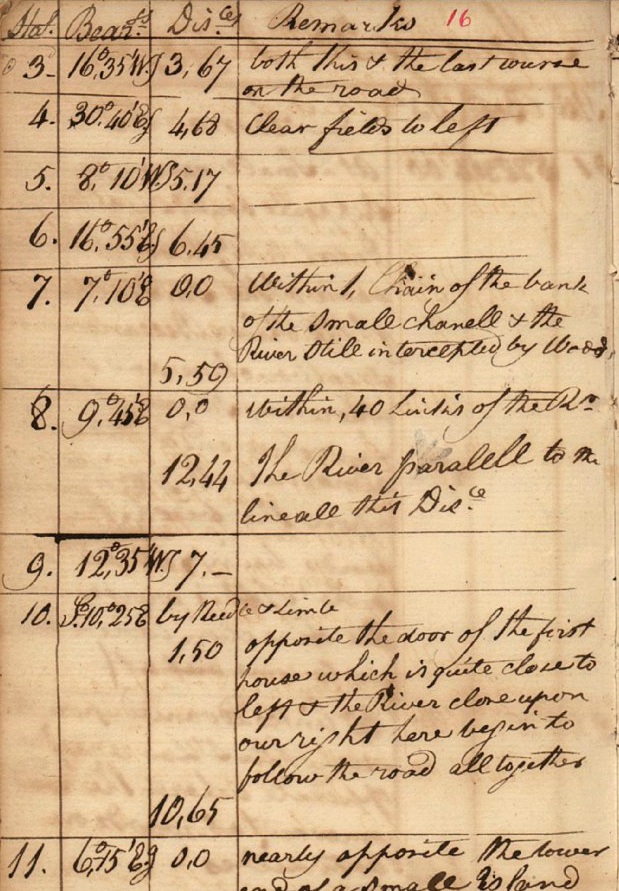 Stat. Bear.gs Dis.ces Remarks 16
3 16°,35'W.S 3,67 both this & the last course
on the road
4. 30°.40'E.S 4,68 Clear fields to left
5. 8°,10'W.S 5.17
6. 16°,55'E.S 6.45
7. 7°,10'E 0,0 Within 1, Chain of the bank
of the Small Chanell & the
River Still intercepted by Wood,
5,59
8. 9°.45'E 0,0 Within, 40 Links of the Rr
12,44 The River paralell to the
line all this Dis.ce
9. 12°,35'W.S 7.–
10. S.10,°25E by Needle & Limb
1,50 opposite the door of the first
house which is quite close to
left & the River close upon
our right here begin to
follow the road all together
10,65
11. 6°,15'E.S 0,0 nearly opposite the lower
end of a Small Island